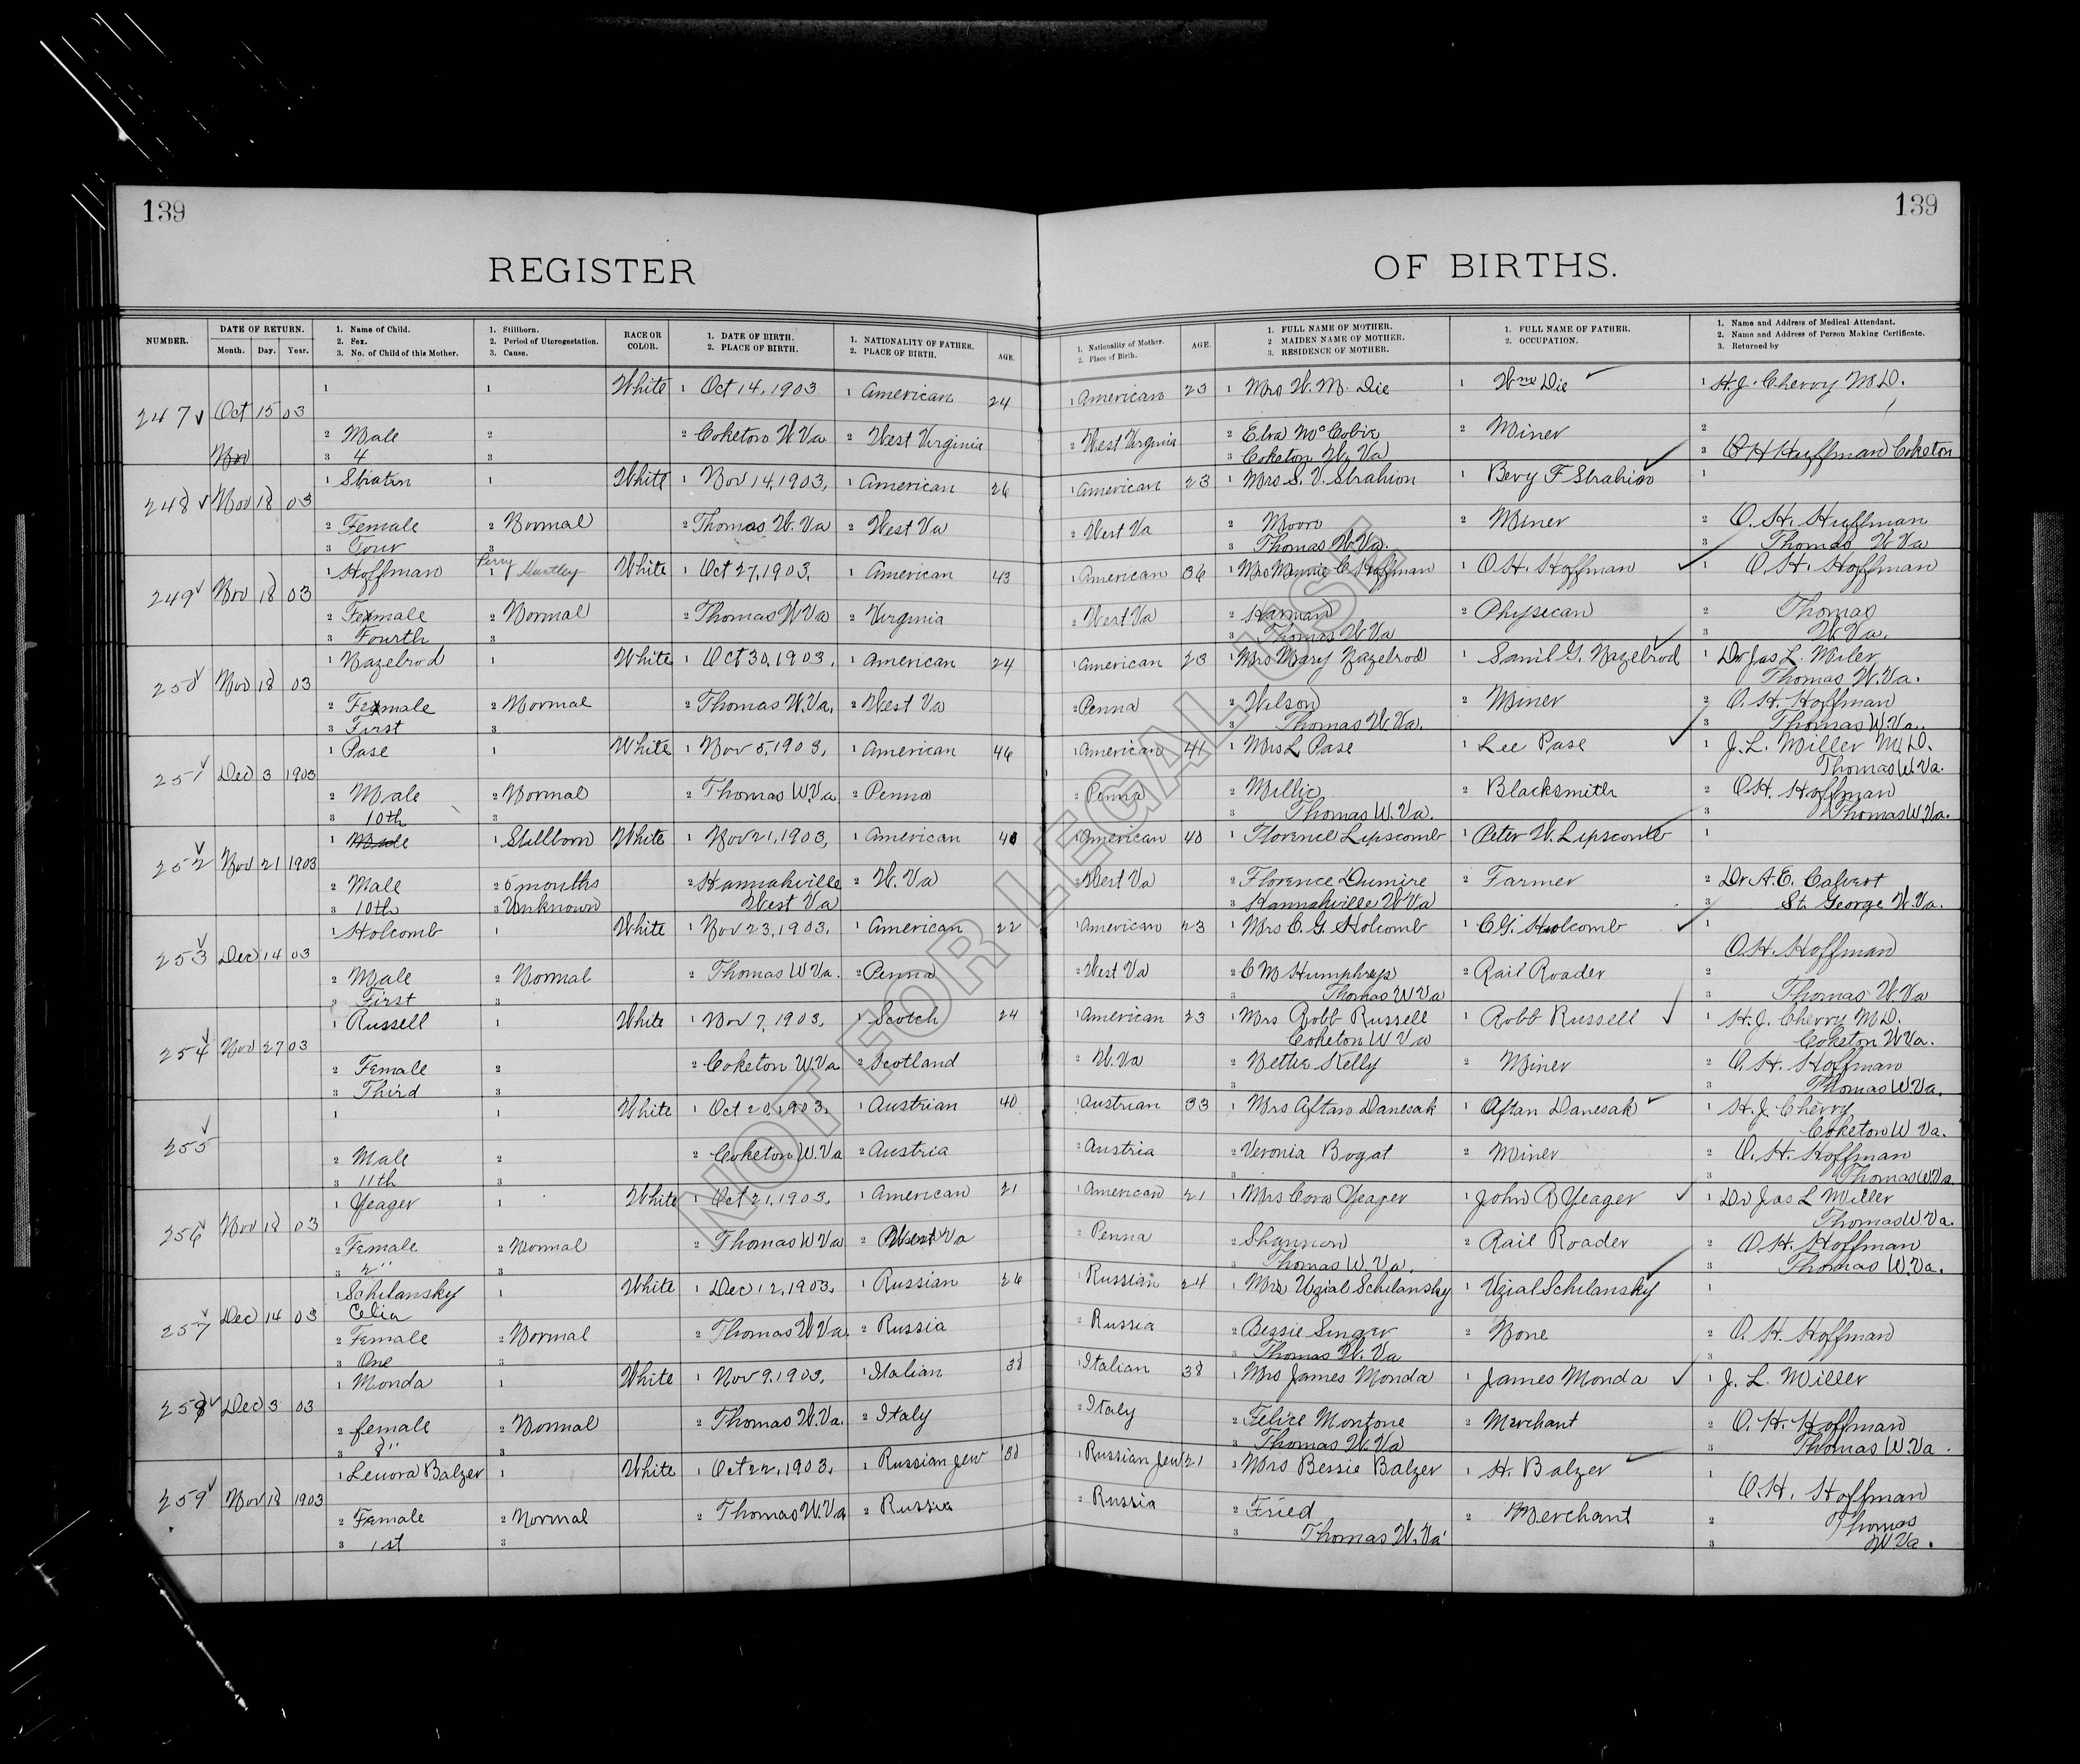 139
139
REGISTER
OF BIRTHS.
NUMBER.
DATE OF RETURN.
Month. Day. Year.
1. Name of Child.
2. Sex.
3. No. of Child of this Mother.
1. Stillborn.
2. Period of Uterogestation.
3. Cause.
RACE OR COLOR.
1. DATE OF BIRTH.
2. PLACE OF BIRTH.
1. NATIONALITY OF FATHER.
2. PLACE OF BIRTH.
AGE.
1. Nationality of Mother.
2. Place of Birth.
AGE.
1. FULL NAME OF MOTHER.
2 MAIDEN NAME OF MOTHER.
3. RESIDENCE OF MOTHER.
1. FULL NAME OF FATHER.
2. OCCUPATION.
1. Name and Address of Medical Attendant.
2. Name and Address of Person Making Certificate.
3. Returned by
1 1 White 1 Oct 14, 1903 1 American 24 1 American 23 1 Mrs W. M. Die 1 Wm Die 1 H. J. Cherry M.D.
247 Oct 15 03
2 Male 2 2 Coketon W Va 2 West Virginia 2 West Virginia 2 Elva McCobie 2 Miner 2
Nov 3 4 3 3 Coketon W. Va 3 O H Huffman Coketon
1 1 White 1 Nov 14, 1903, 1 American 26 1 American 23 1 Mrs S. V. Strahion 1 Bevy F Strahion 1
248 Nov 18 03
2 Female 2 Normal 2 Thomas W. Va 2 West Va 2 West Va 2 Moore 2 Miner 2 O. H. Huffman
3 Four 3 3 Thomas W. Va. 3 Thomas W Va
1 Hoffman 1 Perry Huntley White 1 Oct 27, 1903, 1 American 43 1 American 36 1 Mrs Minnie C Hoffman 1 O H. Hoffman 1 O. H. Hoffman
249 Nov 18 03
2 Female 2 Normal 2 Thomas W Va 2 Virginia 2 West Va 2 Harman 2 Physecan 2 Thomas
3 Fourth 3 3 Thomas W Va 3 W. Va.
1 Nazelrod 1 White 1 Oct 30, 1903, 1 American 24 1 American 23 1 Mrs Mary Nazelrod 1 Saml G. Nazelrod 1 Dr Jas L. Miler
Thomas W. Va.
250 Nov 18 03
2 Female 2 Normal 2 Thomas W. Va, 2 West Va 2 Penna 2 Wilson 2 Miner 2 O. H. Hoffman
3 First 3 3 Thomas W. Va. 3 Thomas W. Va.
1 Pase 1 White 1 Nov 5, 1903, 1 American 46 1 American 41 1 Mrs L Pase 1 Lee Pase 1 J. L. Miller M.D.
Thomas W. Va.
251 Dec 3 1903
2 Male 2 Normal 2 Thomas W. Va 2 Penna 2 Penna 2 Millie 2 Blacksmith 2 O H. Hoffman
3 10th 3 3 Thomas W. Va. 3 Thomas W. Va.
1 Male 1 Stillborn White 1 Nov 21, 1903, 1 American 40 1 American 40 1 Florence Lipscomb 1 Peter W. Lipscomb 1
252 Nov 21 1903
2 Male 2 5 months 2 Hannahville 2 W. Va 2 West Va 2 Florence Dumire 2 Farmer 2 Dr A. E. Calvert
3 10th 3 Unknown West Va 3 Hannahville W Va 3 St. George W. Va.
1 Holcomb 1 White 1 Nov 23, 1903. 1 American 22 1 American 23 1 Mrs C. G. Holcomb 1 C G. Holcomb 1
O. H. Hoffman
253 Dec 14 03
2 Male 2 Normal 2 Thomas W Va. 2 Penna 2 West Va 2 C M Humphreys 2 Rail Roader 2
3 First 3 3 Thomas W Va 3 Thomas W. Va
1 Russell 1 White 1 Nov 7, 1903, 1 Scotch 24 1 American 23 1 Mrs Robb Russell 1 Robb Russell 1 H. J. Cherry M.D.
Coketon W Va Coketon W Va.
254 Nov 27 03
2 Female 2 2 Coketon W. Va 2 Scotland 2 W. Va 2 Nettie Kelly 2 Miner 2 O. H. Hoffman
3 Third 3 3 3 Thomas W. Va.
1 1 White 1 Oct 20, 1903, 1 Austrian 40 1 Austrian 33 1 Mrs Aftan Danesak 1 Aftan Danesak 1 H. J. Cherry
Coketon W Va.
255
2 Male 2 2 Coketon W. Va 2 Austria 2 Austria 2 Veronia Bogat 2 Miner 2 O. H. Hoffman
3 11th 3 3 3 Thomas W Va
1 Yeager 1 White 1 Oct 21, 1903. 1 American 21 1 American 21 1 Mrs Cora Yeager 1 John B Yeager 1 Dr Jas L Miller
Thomas W Va.
256 Nov 18 03
2 Female 2 Normal 2 Thomas W Va 2 West Va 2 Penna 2 Shannon 2 Rail Roader 2 O H. Hoffman
3 2" 3 3 Thomas W. Va. 3 Thomas W. Va.
1 Schilansky 1 White 1 Dec 12, 1903. 1 Russian 26 1 Russian 24 1 Mrs Uzial Schilansky 1 Uzial Schilansky 1
Celia
257 Dec 14 03
2 Female 2 Normal 2 Thomas W Va. 2 Russia 2 Russia 2 Bessie Singer 2 None 2 O. H. Hoffman
3 One 3 3 Thomas W. Va 3
1 Monda 1 White 1 Nov 9, 1903, 1 Italian 38 1 Italian 38 1 Mrs James Monda 1 James Monda 1 J. L. Miller
258 Dec 3 03
2 female 2 Normal 2 Thomas W. Va. 2 Italy 2 Italy 2 Felice Montone 2 Merchant 2 O. H. Hoffman
3 8" 3 3 Thomas W. Va 3 Thomas W. Va.
1 Lenora Balzer 1 White 1 Oct 22, 1903, 1 Russian Jew 30 1 Russian Jew 21 1 Mrs Bessie Balzer 1 H. Balzer 1
O. H. Hoffman
259 Nov 18 1903
2 Female 2 Normal 2 Thomas W. Va 2 Russia 2 Russia 2 Fried 2 Merchant 2 Thomas
3 1st 3 3 Thomas W. Va 3 W Va.
NOT FOR LEGAL USE